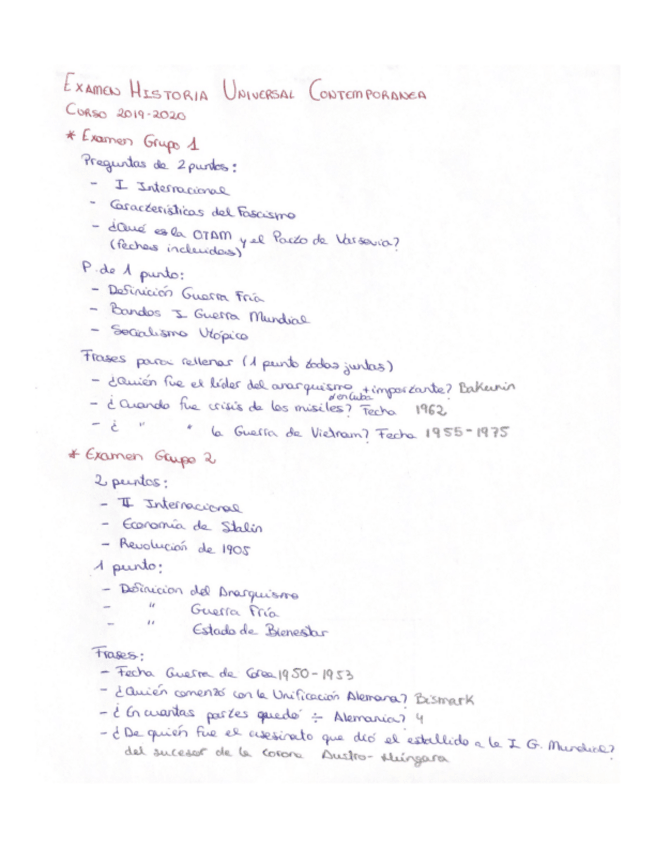 EXAMEN HISTORIA UNIVERSAL CONTEMPORANEA
CURSO 2019-2020
* Examen Grupo 1
Preguntas de 2 puntos:
- I Internacional
- Características del Fascismo
- ¿Qué es la OTAM y el Pacto de Varsovia?
(fechas incluidas)
P. de 1 punto:
- Definición Guerra Fría
- Bandos I Guerra Mundial
- Socialismo Utópico
Frases para rellenar (1 punto todas juntas)
- ¿Quién fue el líder del anarquismo + importante? Bakunin
- ¿Cuando fue crisis de los misiles? Fecha 1962
- ¿ " " la Guerra de Vietnam? Fecha 1955-1975
* Examen Grupo 2
2 puntos:
- II Internacional
- Economía de Stalin
- Revolución de 1905
1 punto:
- Definicion del Anarquismo
- " Guerra Fría
- " Estado de Bienestar
Frases:
- Fecha Guerra de Corea 1950-1953
- ¿Quién comenzó con la Unificación Alemana? Bismark
- ¿En cuantas partes quedó ÷ Alemania? 4
- ¿De quién fue el asesinato que dió el estallido a la I G. Mundial?
del sucesor de la corona Austro-Húngara